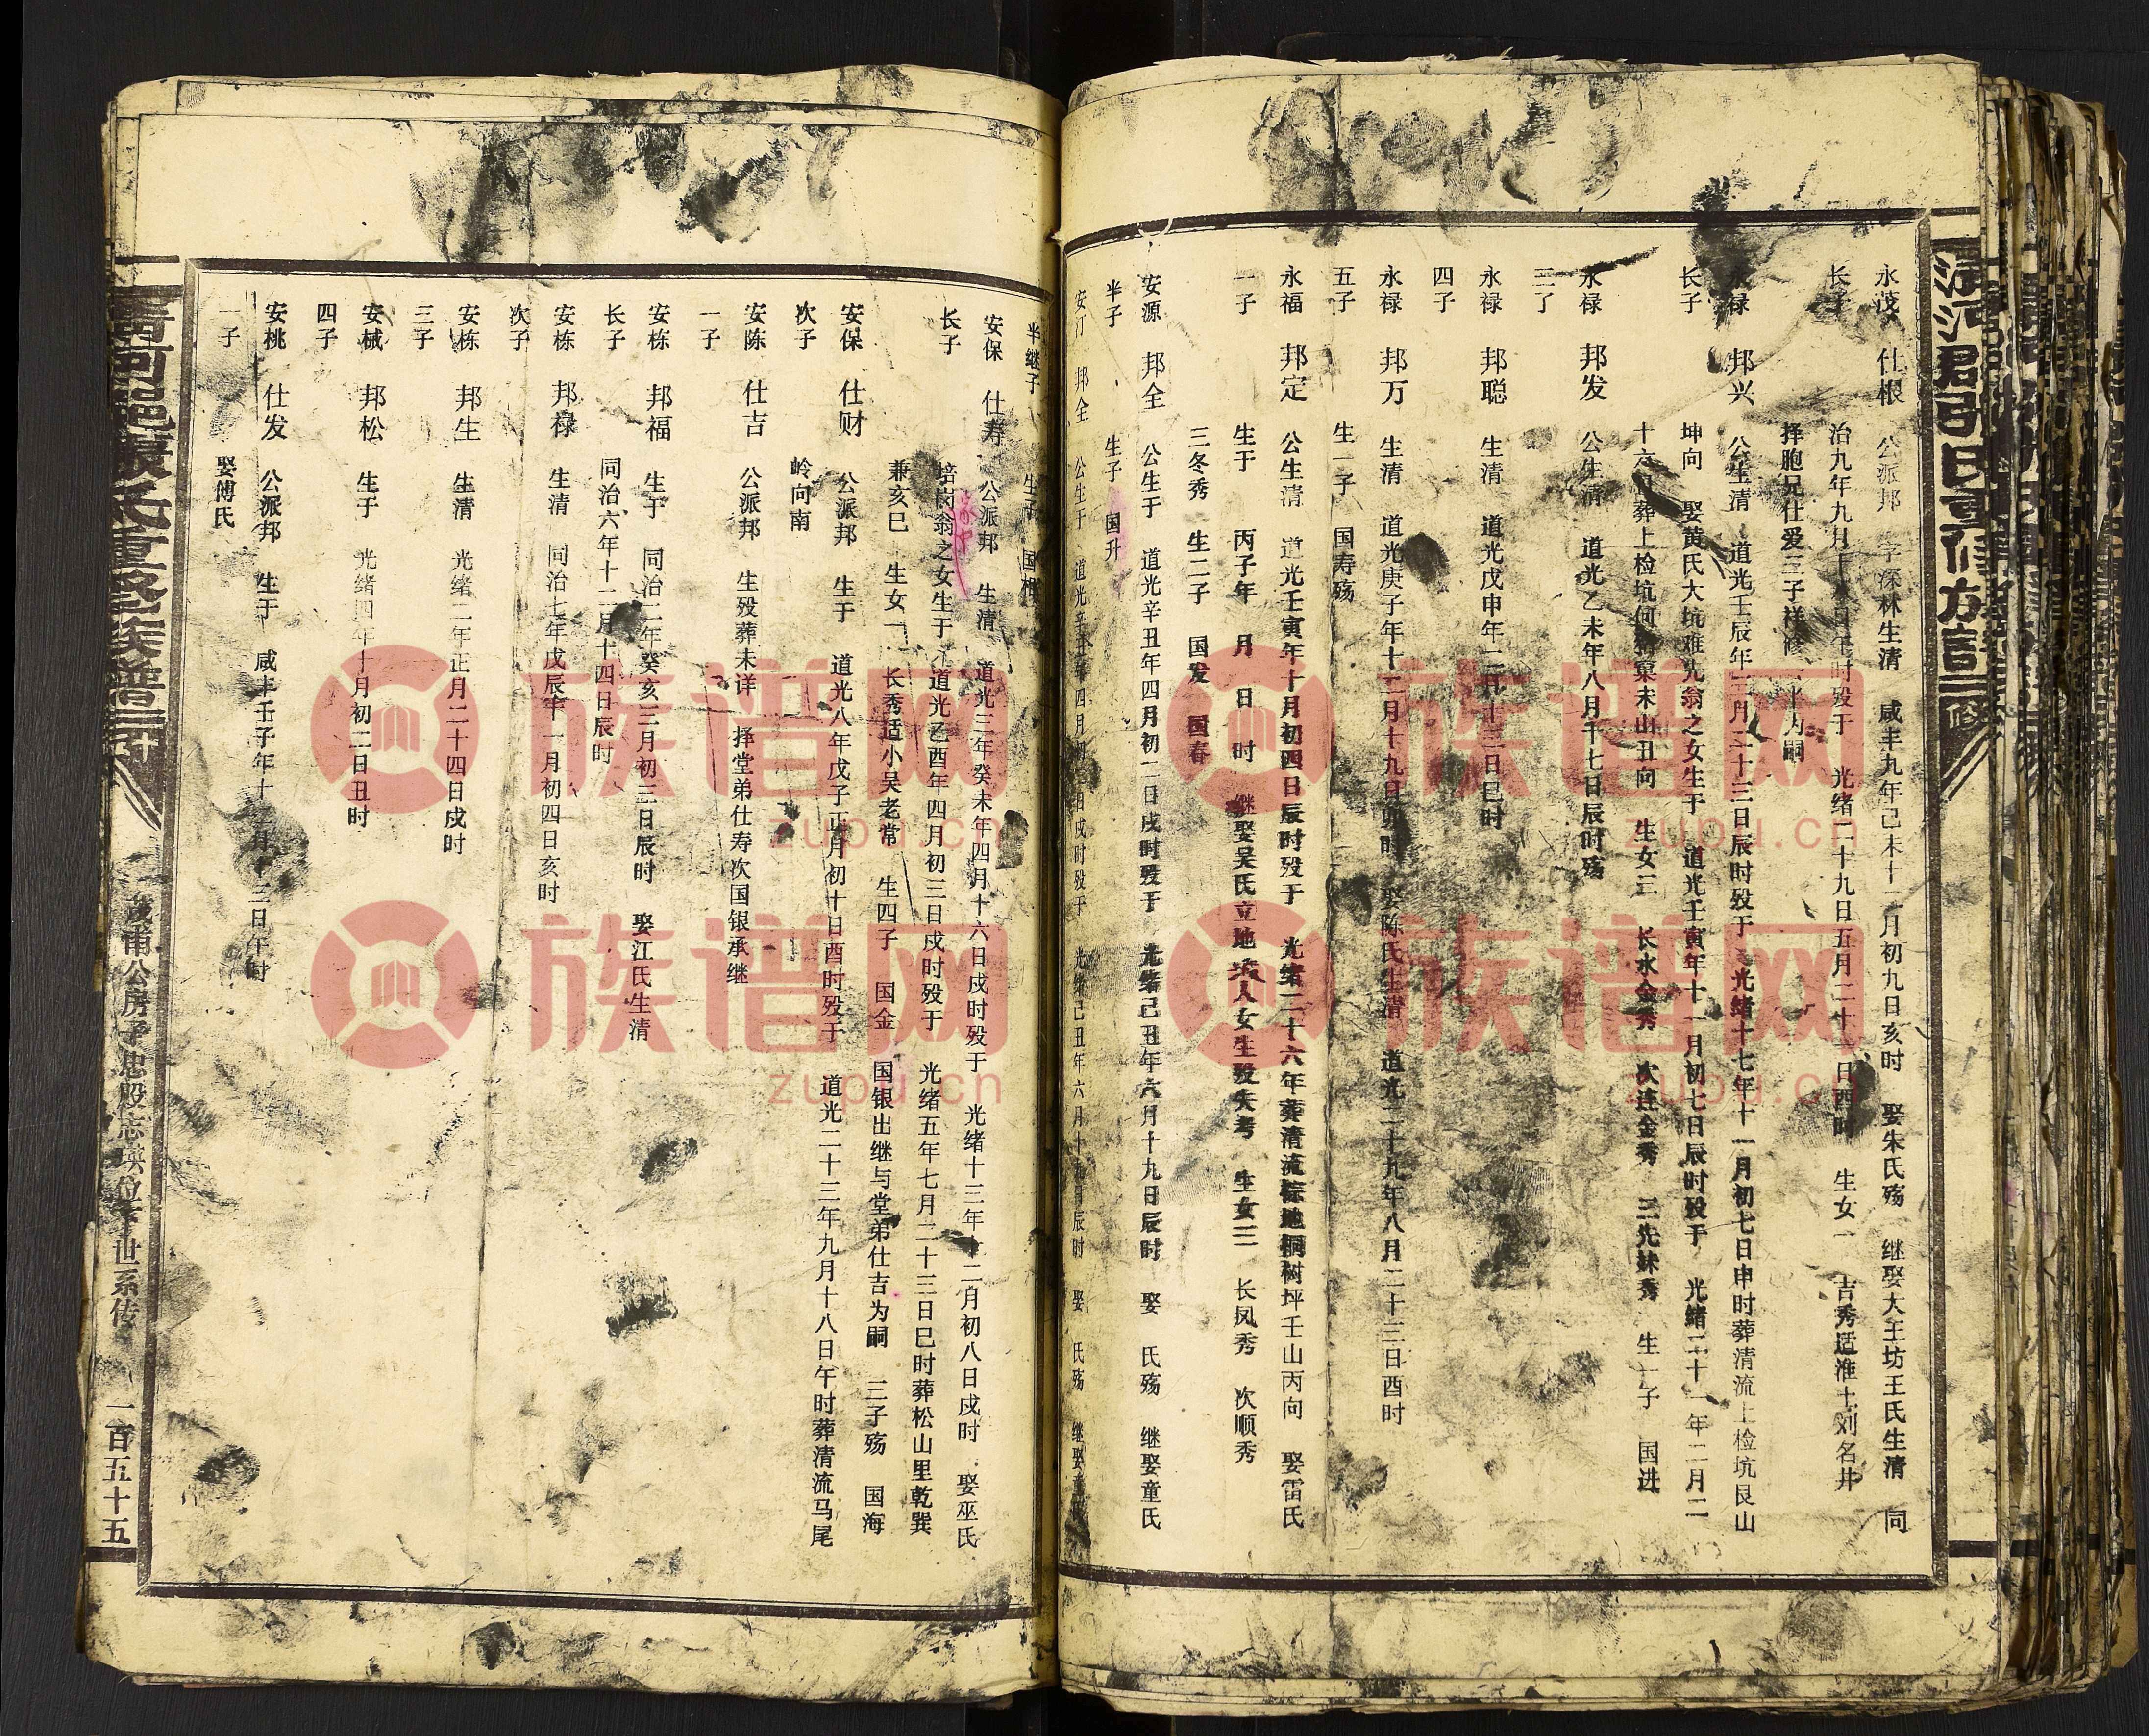 永茂 仕根 公派邦 字深林生清 咸丰九年己未十二月初九日亥时 娶朱氏殇 继娶大王坊王氏生清 同
长子 治九年九月 日午时殁于 光绪二十九日五月二十 日酉时 生女一 吉秀适淮土刘名井
择胞兄仕爱三子祥修 半为嗣
永禄 邦兴 公生清 道光壬辰年 月二十三日辰时殁于 光绪十七年十一月初七日申时葬清流上检坑艮山
长子 坤向 娶黄氏大坑难先翁之女生于 道光壬寅年十一月初七日辰时殁于 光绪二十一年二月二
十六 葬上检坑何 窠未山丑向 生女三 长水金秀 次连金秀 三先妹秀 生一子 国进
永禄 邦发 公生清 道光乙未年八月 七日辰时殇
三子
永禄 邦聪 生清 道光戊申年二月十三日巳时
四子
永禄 邦万 生清 道光庚子年十二月十九日卯时 娶陈氏生清 道光二十九年八月二十三日酉时
五子 生一子 国寿殇
永福 邦定 公生清 道光壬寅年十月初四日辰时殁于 光绪二十六年葬清流 地桐树坪壬山丙向 娶雷氏
一子 生于 丙子年 月 日 时 继娶吴氏立地 人女生殁失考 生女三 长凤秀 次顺秀
三冬秀 生二子 国发 国春
安源 邦全 公生于 道光辛丑年四月初二日戌时殁于 光绪己丑年六月十九日辰时 娶 氏殇 继娶童氏
半子 生子 国升
安汀 邦全 公生于 道光辛丑年四月初二日戌时殁于 光绪己丑年六月十九日辰时 娶 氏殇 继娶童氏
清河郡张氏重修族谱 三修
半继子 生子 国相
安保 仕寿 公派邦 生清 道光三年癸未年四月十六日戌时殁于 光绪十三年十二月初八日戌时 娶巫氏
长子 培岗翁之女生于 道光乙酉年四月初三日戌时殁于 光绪五年七月二十三日巳时葬松山里乾巽
兼亥巳 生女一 长秀适小吴老常 生四子 国金 国银出继与堂弟仕吉为嗣 三子殇 国海
安保 仕财 公派邦 生于 道光八年戊子正月初十日酉时殁于 道光二十三年九月十八日午时葬清流马尾
次子 岭向南
安陈 仕吉 公派邦 生殁葬未详 择堂弟仕寿次国银承继
一子
安栋 邦福 生于 同治二年 癸亥三月初三日辰时 娶江氏生清
长子 同治六年十二月十四日辰时
安栋 邦禄 生清 同治七年戊辰年一月初四日亥时
次子
安栋 邦生 生清 光绪二年正月二十四日戌时
三子
安械 邦松 生于 光绪四年十月初二日丑时
四子
安桃 仕发 公派邦 生于 咸丰壬子年十 月十三日午时
一子 娶傅氏
茂甫公房 志瑛位下世系传
一百五十五
族谱网
zupu.cn
族谱网
zupu.cn
族谱网
zupu.cn
族谱网
zupu.cn